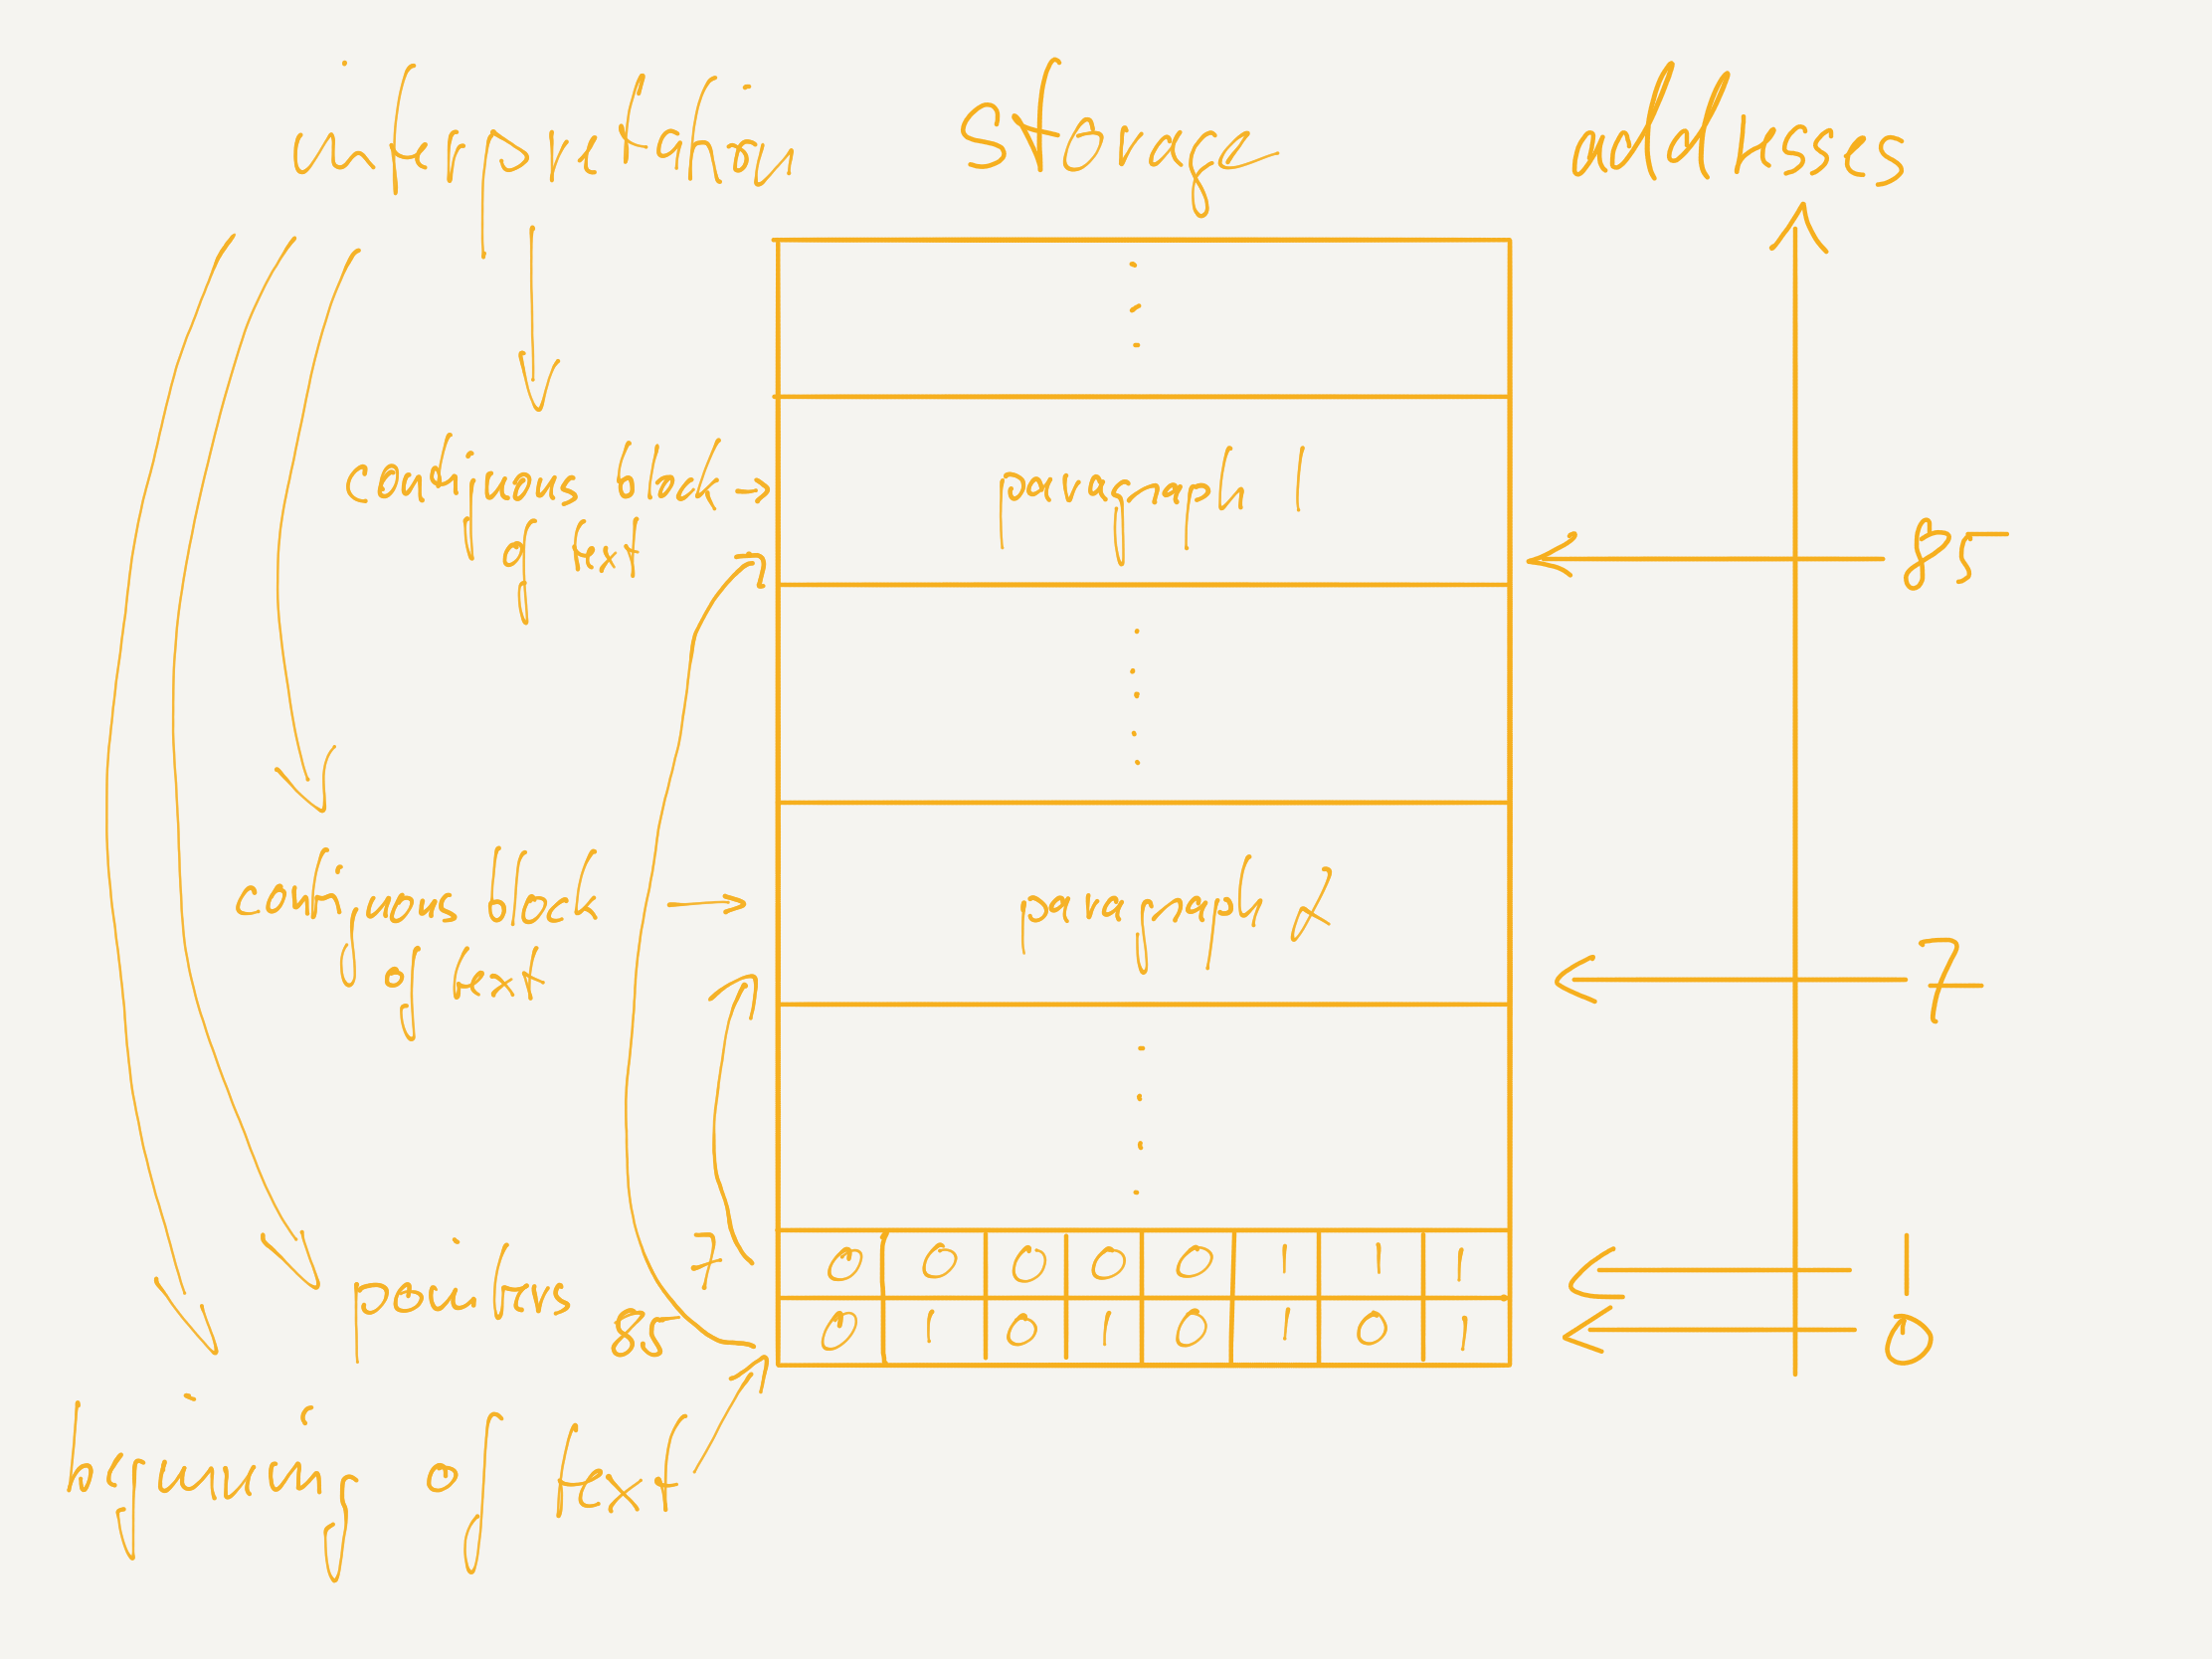 interpretation storage addresses
contiguous block
of text
paragraph 1
85
contiguous block
of text
paragraph 2
7
pointers
7
0 0 0 0 0 1 1 1
1
85
0 1 0 1 0 1 0 1
0
beginning of text